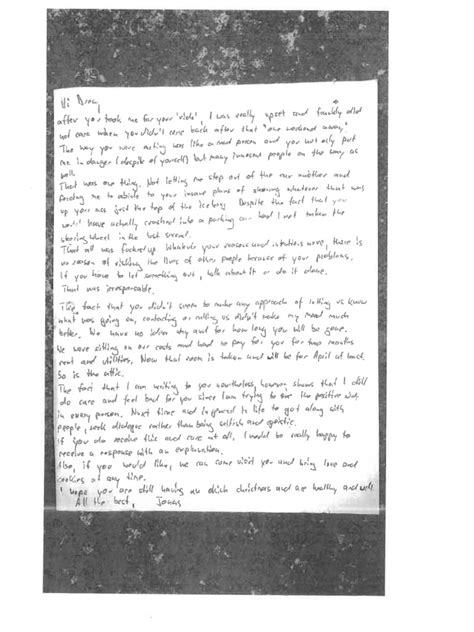 Hi Drew,
after you took me for your 'ride', I was really upset and frankly did
not care when you didn't come back after that "one weekend away".
The way you were acting was like a mad person and you not only put
me in danger (despite of yourself) but many innocent people on the way as
well.
That was one thing. Not letting me step out of the car and
forcing me to abide to your insane plans of whatever that was
up your ass just the top of the iceberg. Despite the fact that you
would have actually crashed into a parking car had I not taken the
steering wheel in the last second.
That all was fucked up. Whatever your reasons and intentions were, there is
no reason of risking the lives of other people because of your problems.
If you have to let something out, talk about it or do it alone.
That was irresponsible.
The fact that you didn't seem to make any approach of letting us know
what was going on, contacting or calling us didn't make my mood much
better. We have no idea why and for how long you will be gone.
We were sitting on our costs and had to pay for you for two months
rent and utilities. Now that room is taken and will be for April at least.
So is the attic.
The fact that I am writing to you nevertheless however, shows that I still
do care and feel bad for you since I am trying to see the positive
in every person. Next time and in general in life to get along with
people, seek dialogue rather than being selfish and egoistic.
If you do receive this and care at all, I would be really happy to
receive a response with an explanation.
Also, if you would like, we can come visit you and bring love and
cookies at any time.
I hope you are still having an christmas and are healthy and well
All the best, Jonas